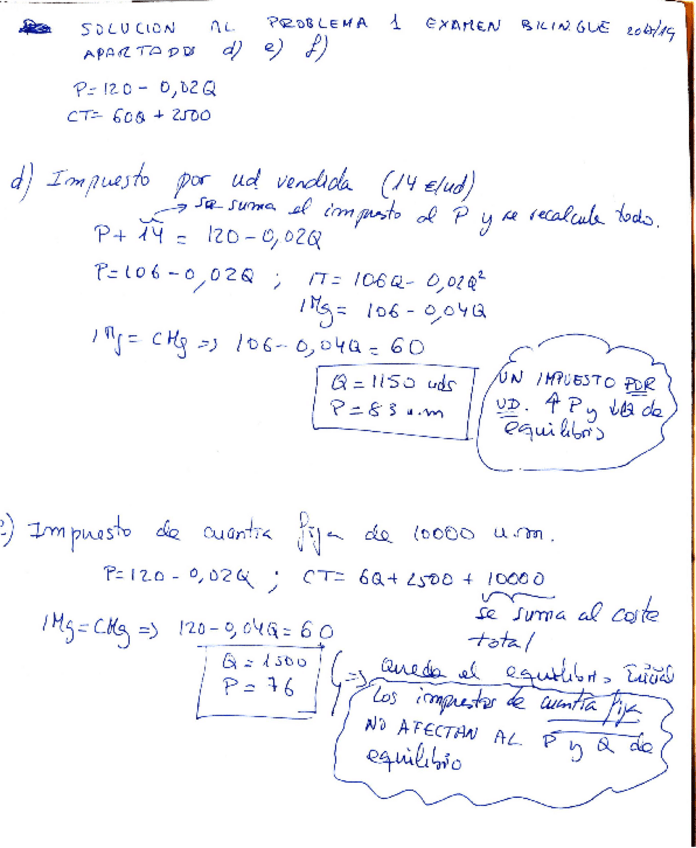 SOLUCION AL PROBLEMA 1 EXAMEN BILINGUE 2018/19
APARTADOS d) e) f)
P=120-0,02Q
CT= 60Q+2500
d) Impuesto por ud vendida (14 €/ud)
→ se suma el impuesto al P y se recalcula todo.
P+14 = 120-0,02Q
P=106-0,02Q ; IT= 106Q-0,02Q²
IMg= 106-0,04Q
IMg= CMg => 106-0,04Q=60
Q=1150 uds
P=83 u.m
UN IMPUESTO POR
UD. ↑P y ↓Q de
equilibrio
e) Impuesto de cuantía fija de 10000 u.m.
P=120-0,02Q ; CT= 6Q+2500+10000
se suma al coste
total
IMg=CMg => 120-0,04Q=60
Q=1500
P=76
=> Queda el equilibrio inicial
Los impuestos de cuantía fija
NO AFECTAN AL P y Q de
equilibrio